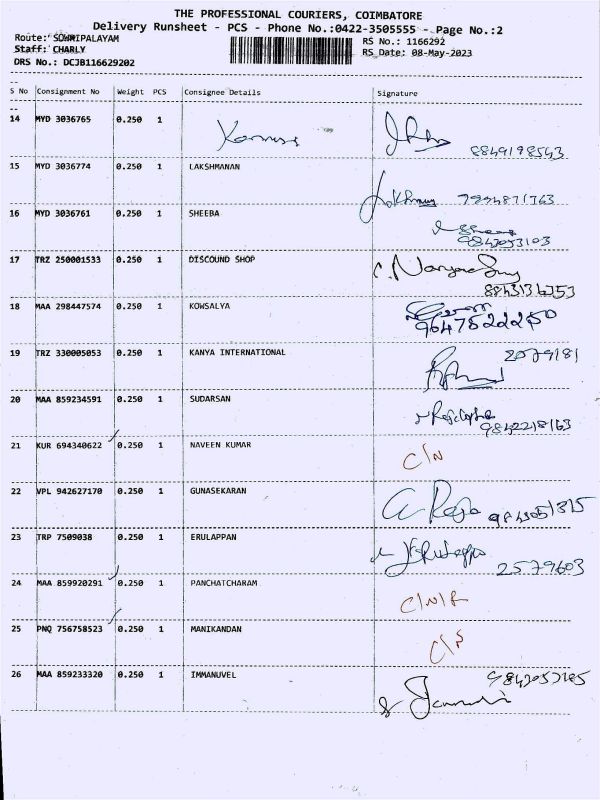 THE PROFESSIONAL COURIERS, COIMBATORE
Delivery Runsheet - PCS - Phone No.:0422-3505555 - Page No.:2
Route: SOWRIPALAYAM
RS No.: 1166292
Staff: CHARLY
RS Date: 08-May-2023
DRS No.: DCJB116629202
S No Consignment No Weight PCS Consignee Details Signature
14 MYD 3036765 0.250 1
8849198543
15 MYD 3036774 0.250 1 LAKSHMANAN
7994871763
16 MYD 3036761 0.250 1 SHEEBA
9843053103
17 TRZ 250001533 0.250 1 DISCOUND SHOP
18 MAA 298447574 0.250 1 KOWSALYA
19 TRZ 330005053 0.250 1 KANYA INTERNATIONAL
2579181
20 MAA 859234591 0.250 1 SUDARSAN
9842218163
21 KUR 694340622 0.250 1 NAVEEN KUMAR
C/N
22 VPL 942627170 0.250 1 GUNASEKARAN
23 TRP 7509038 0.250 1 ERULAPPAN
2579603
24 MAA 859920291 0.250 1 PANCHATCHARAM
C/N/R
25 PNQ 756758523 0.250 1 MANIKANDAN
26 MAA 859233320 0.250 1 IMMANUVEL